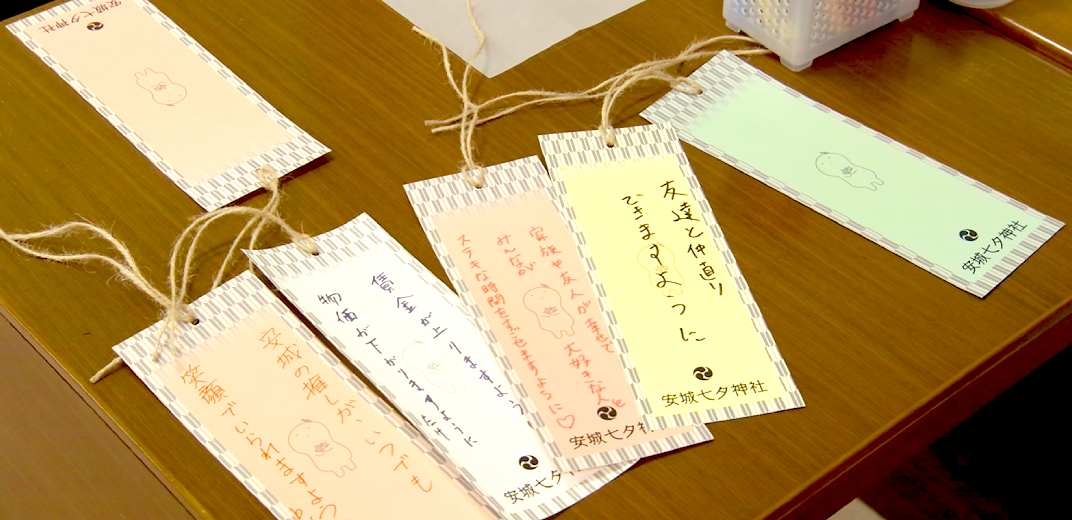 安城七夕神社
安城の推しが、いつでも
笑顔でいられますよう
賃金が上りますよう
物価が下がりますように
安城七夕神社
家族や友人が幸せで
みんなが
大好きな人と
ステキな時間をすごせますように♡
安城七夕神社
友達と仲直り
できますように
安城七夕神社
安城七夕神社